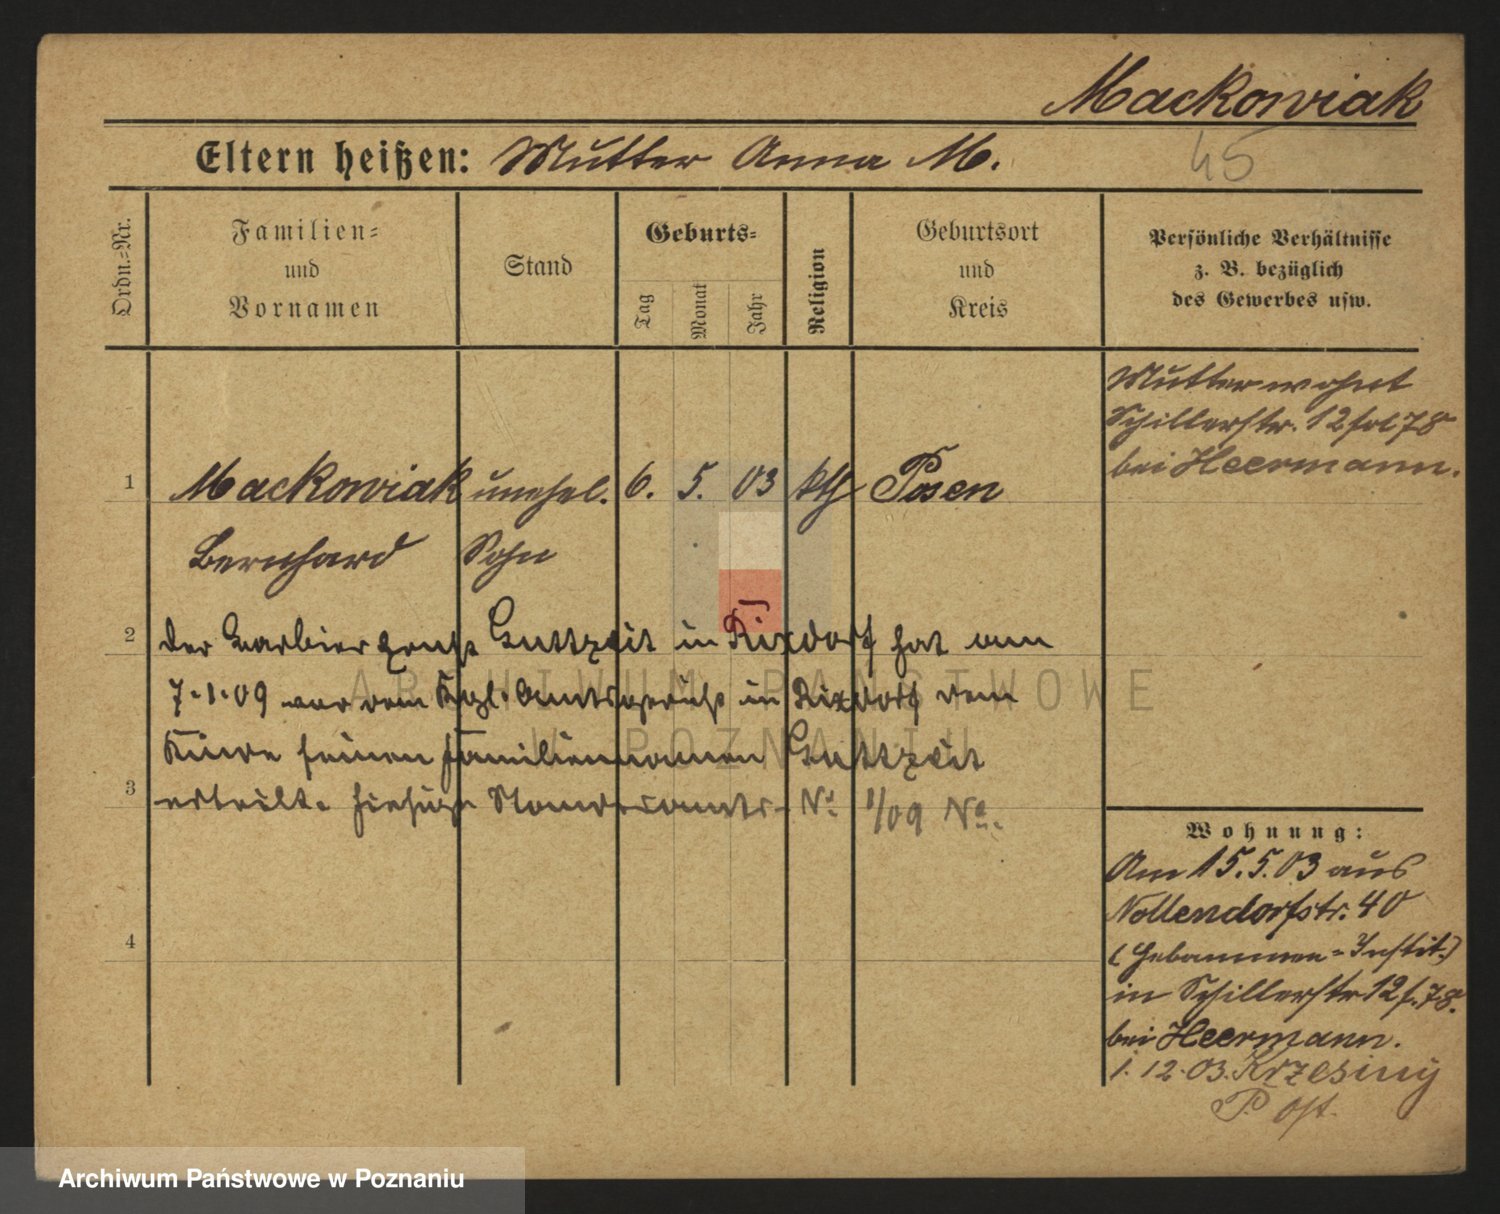 Mackowiak
Eltern heißen: Mutter Anna M.
45
Ordn.-Nr.
Familien-
und
Vornamen
Stand
Geburts-
Tag
Monat
Jahr
Religion
Geburtsort
und
Kreis
Persönliche Verhältnisse
z. B. bezüglich
des Gewerbes usw.
Mutter wohnt
Schillerstr. 12 fol 78
bei Heermann.
1 Mackowiak unehel. 6. 5. 03 kth Posen
Bernhard Sohn
2 Der Barbier Ernst Guttzeit in Rixdorf hat am
7.1.09 vor dem Kgl. Amtsgericht in Rixdorf dem
Kinde seinen Familiennamen Guttzeit
3 erteilt. hiesige Standesamts- No 1/09 No.
4
Wohnung:
Am 15.5.03 aus
Nollendorfstr. 40
(Hebammen-Instit.)
in Schillerstr 12 f. 78.
bei Heermann.
1.12.03. Krzesiny
P. Ost.
ARCHIWUM PAŃSTWOWE
W POZNANIU
Archiwum Państwowe w Poznaniu